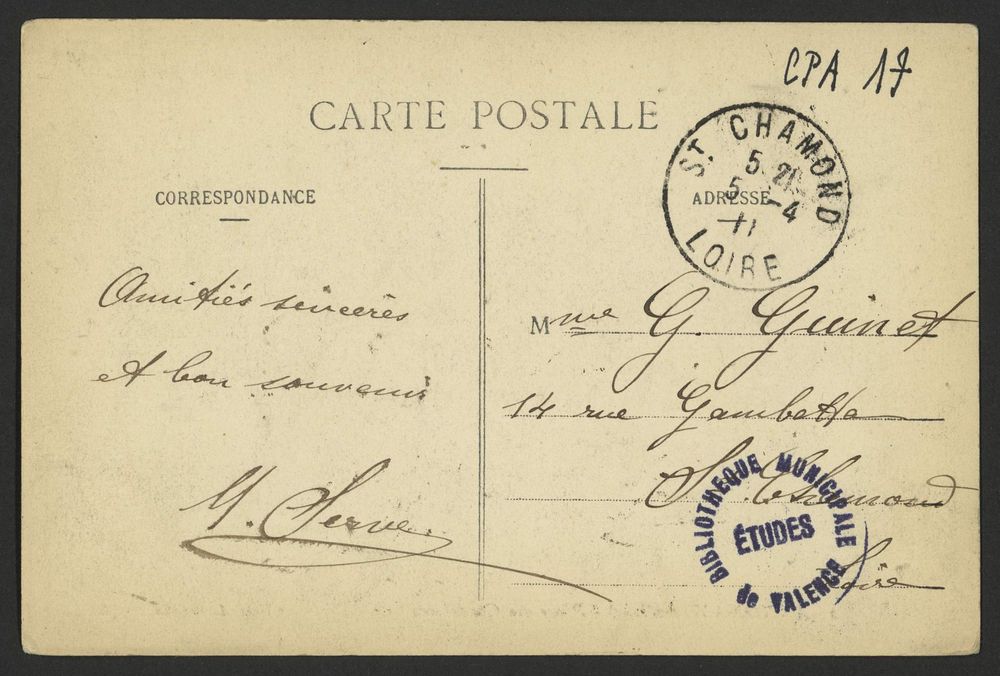 CPA 17
CARTE POSTALE
CORRESPONDANCE
ADRESSE
St. CHAMOND
5 21
5 - 4
11
LOIRE
Amitiés sincères
et bon souvenir
M. Serve.
Mme G. Guinet
14 rue Gambetta
St Chamond
Loire
BIBLIOTHEQUE MUNICIPALE
ÉTUDES
de VALENCE